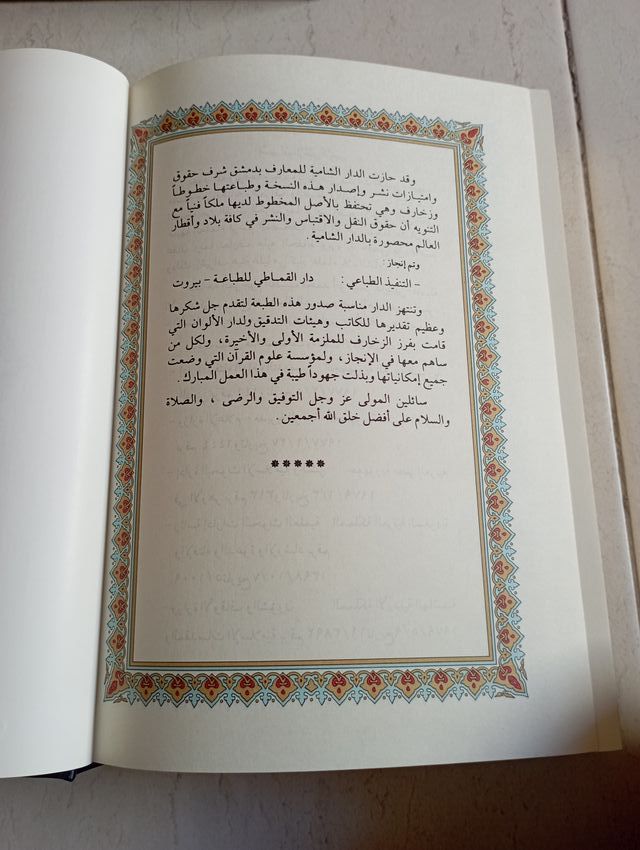 وقد حازت الدار الشامية للمعارف بدمشق شرف حقوق
وامتيازات نشر وإصدار هذه النسخة وطباعتها خطوطاً
وزخارف وهي تحتفظ بالأصل المخطوط لديها ملكاً فنياً مع
التنويه أن حقوق النقل والاقتباس والنشر في كافة بلاد وأقطار
العالم محصورة بالدار الشامية .
وتم إنجاز :
- التنفيذ الطباعي : دار القماطي للطباعة - بيروت
وتنتهز الدار مناسبة صدور هذه الطبعة لتقدم جل شكرها
وعظيم تقديرها للكاتب وهيئات التدقيق ولدار الألوان التي
قامت بفرز الزخارف للملزمة الأولى والأخيرة ، ولكل من
ساهم معها في الإنجاز ، ولمؤسسة علوم القرآن التي وضعت
جميع إمكانياتها وبذلت جهوداً طيبة في هذا العمل المبارك .
سائلين المولى عز وجل التوفيق والرضى ، والصلاة
والسلام على أفضل خلق الله أجمعين .